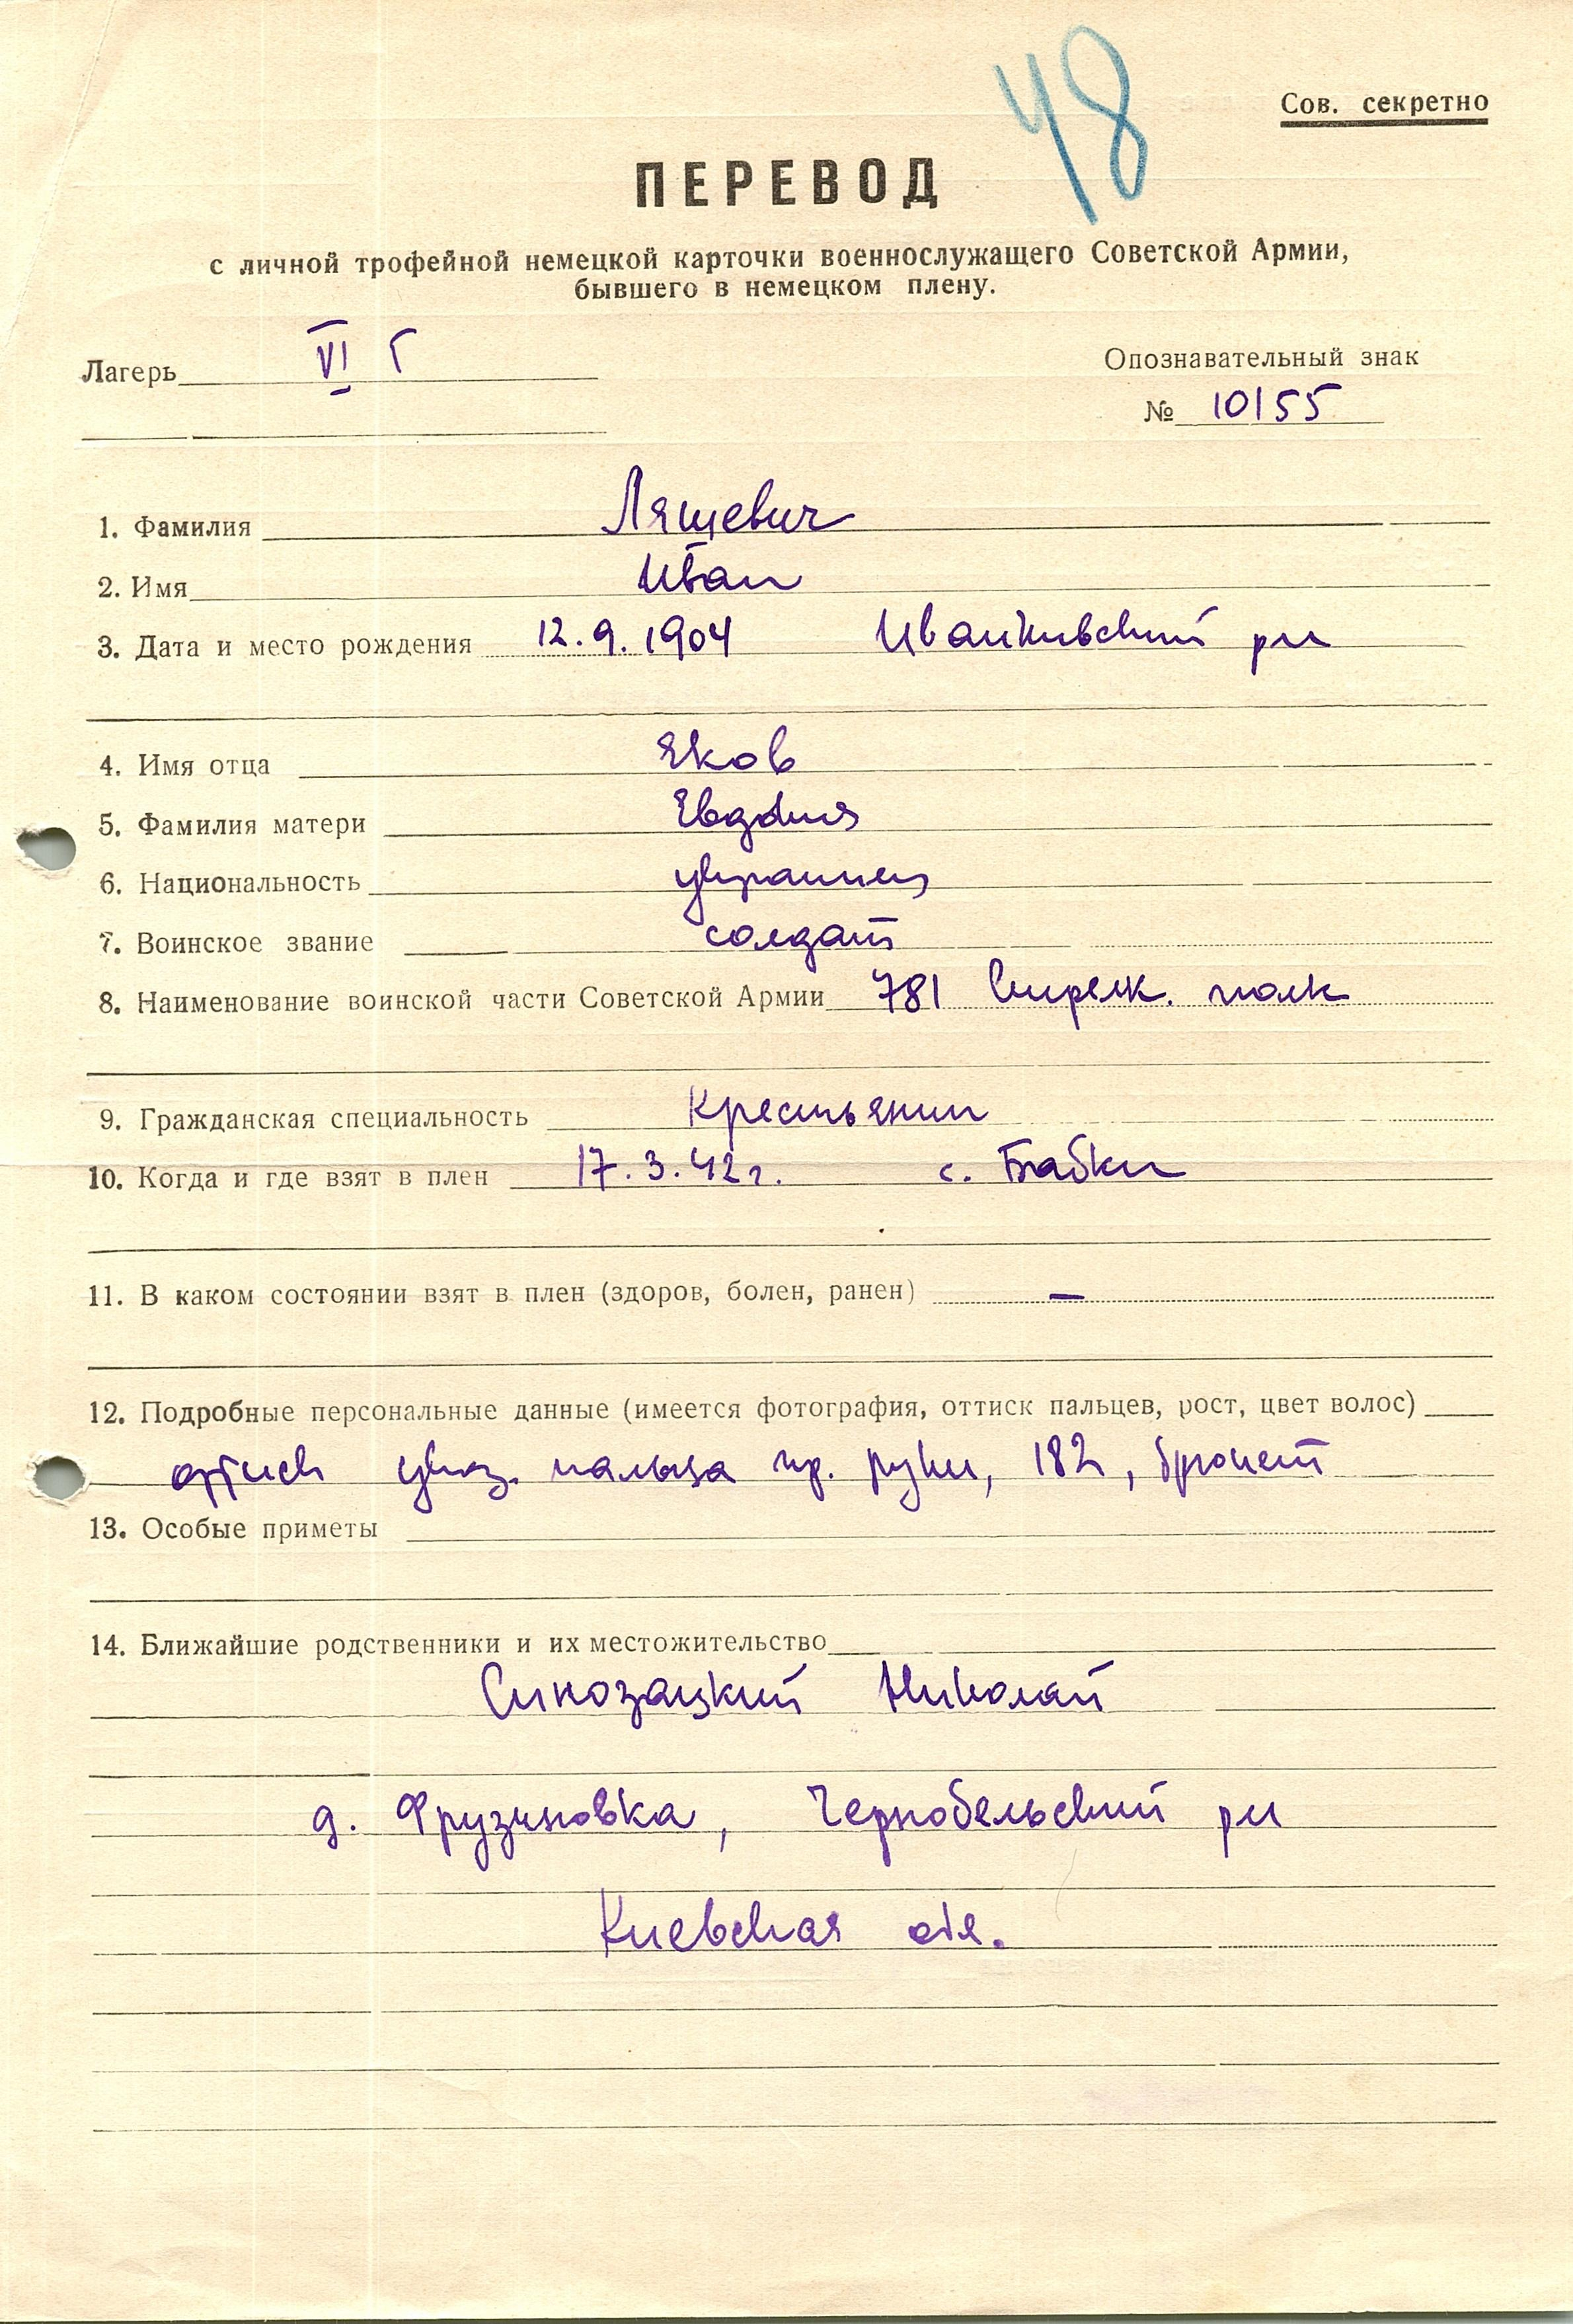 48
Сов. секретно
ПЕРЕВОД
с личной трофейной немецкой карточки военнослужащего Советской Армии,
бывшего в немецком плену.
Лагерь VI Г
Опознавательный знак
№ 10155
1. Фамилия Лящевич
2. Имя Иван
3. Дата и место рождения 12.9.1904 Иванкивский рн
4. Имя отца Яков
5. Фамилия матери Евдокия
6. Национальность украинец
7. Воинское звание солдат
8. Наименование воинской части Советской Армии 781 Стрелк. полк
9. Гражданская специальность Крестьянин
10. Когда и где взят в плен 17.3.42г. с. Бабки
11. В каком состоянии взят в плен (здоров, болен, ранен) —
12. Подробные персональные данные (имеется фотография, оттиск пальцев, рост, цвет волос)
оттиск указ. пальца пр. руки, 182, брюнет
13. Особые приметы
14. Ближайшие родственники и их местожительство
Николай
д. Фрузиновка, Чернобельский рн
Киевская обл.